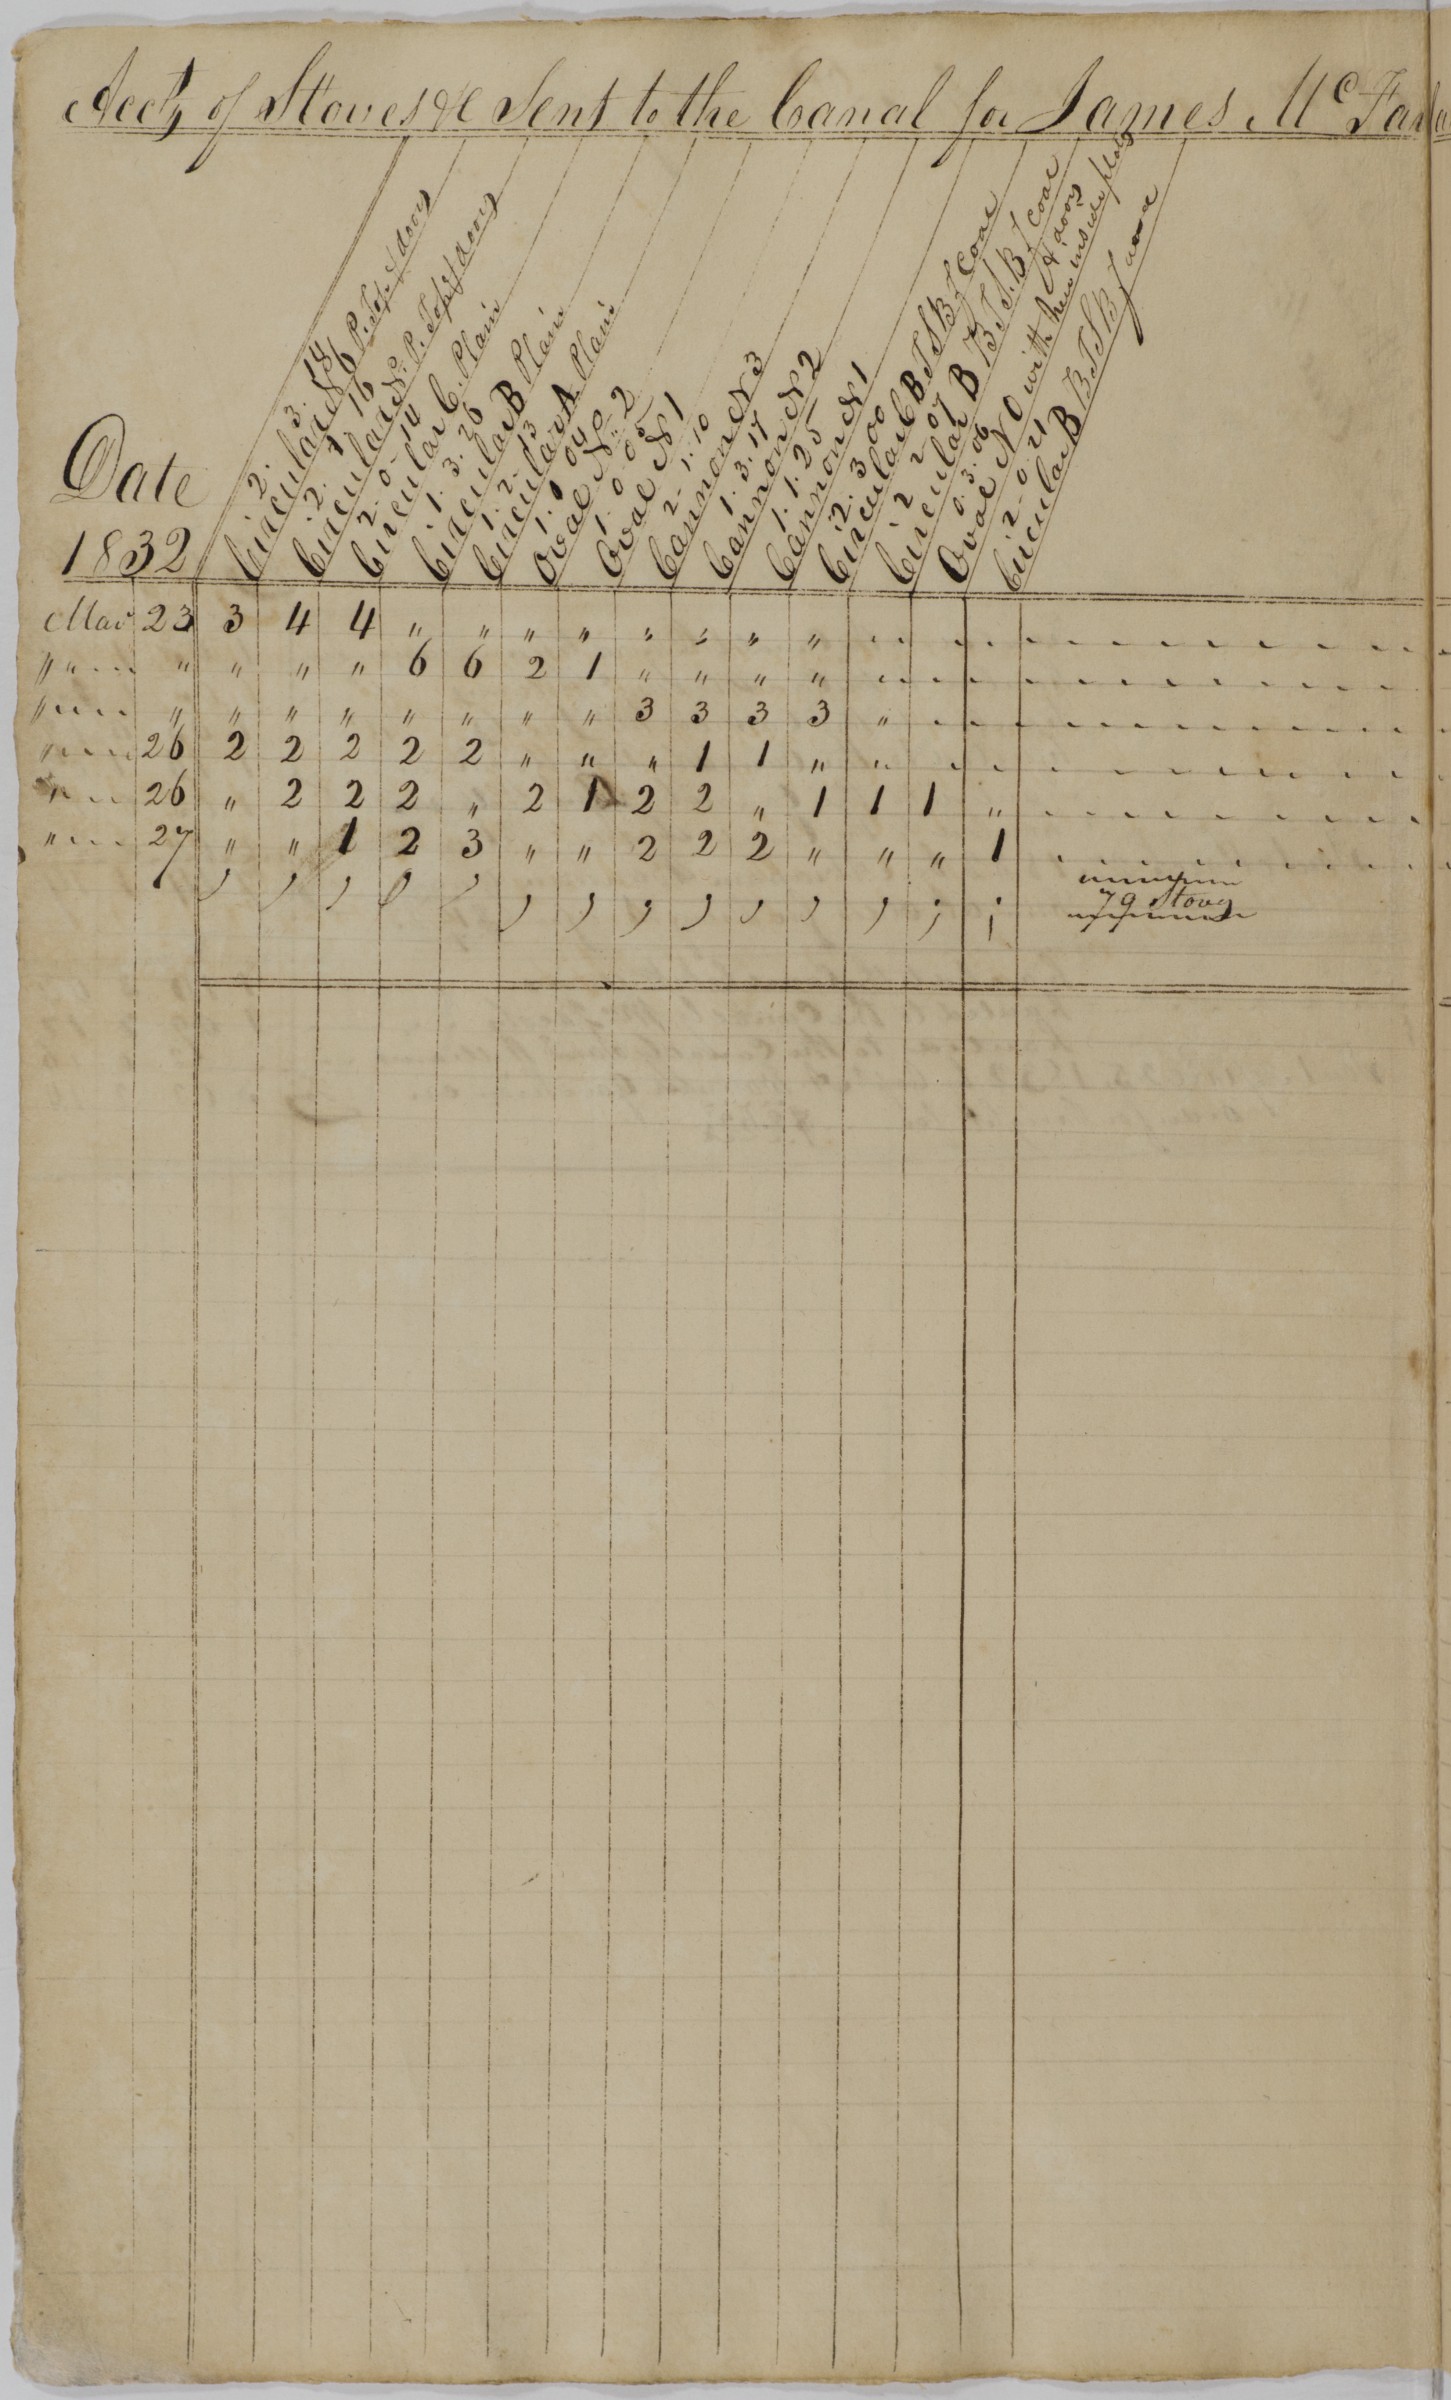 Acct, of Stoves &c Sent to the Canal for James McFarla
Date
1832
2. 3. 14
Circular N 6 P. Top & doors
2. 1 16
Circular N. P. Top & doors
2. 0. 14
Circular C. Plain
1. 3. 26
Circular B Plain
1. 2. 13
Circular A Plain
1. 0 04
Oval No 2
1. 0. 05
Oval N 1
2. 1. 10
Cannon N 3
1. 3. 17
Cannon N 2
1. 1. 25
Cannon N 1
2. 3 00
Circular C B T S B f Coal
2 2 07
Circular B B T S. B f Coal
0. 3. 06
Oval N 0 with & doors
2. 0. 21
Circular B B T S B f wood
Mar 23 3 4 4 " " " " " " " "
" " " " " " 6 6 2 1 " " " "
" " " " " " " " " 3 3 3 3 "
" 26 2 2 2 2 2 " " " 1 1 " "
" 26 " 2 2 2 " 2 1 2 2 " 1 1 1 "
" 27 " " 1 2 3 " " 2 2 2 " " " 1
79 Stoves